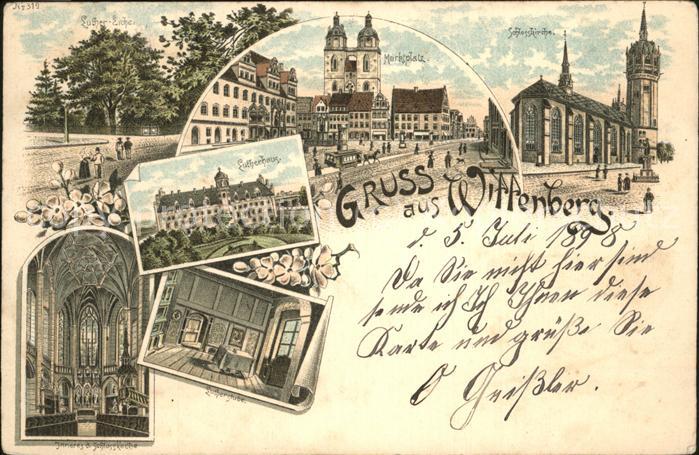 No 319
Luther-Eiche.
Marktplatz.
Schlosskirche.
Lutherhaus.
GRUSS
aus Wittenberg.
d. 5. Juli 1898
Da Sie nicht hier sind
sende ich Ihnen diese
Karte und grüße Sie
O Geißler.
Lutherstube.
Inneres d. Schlosskirche